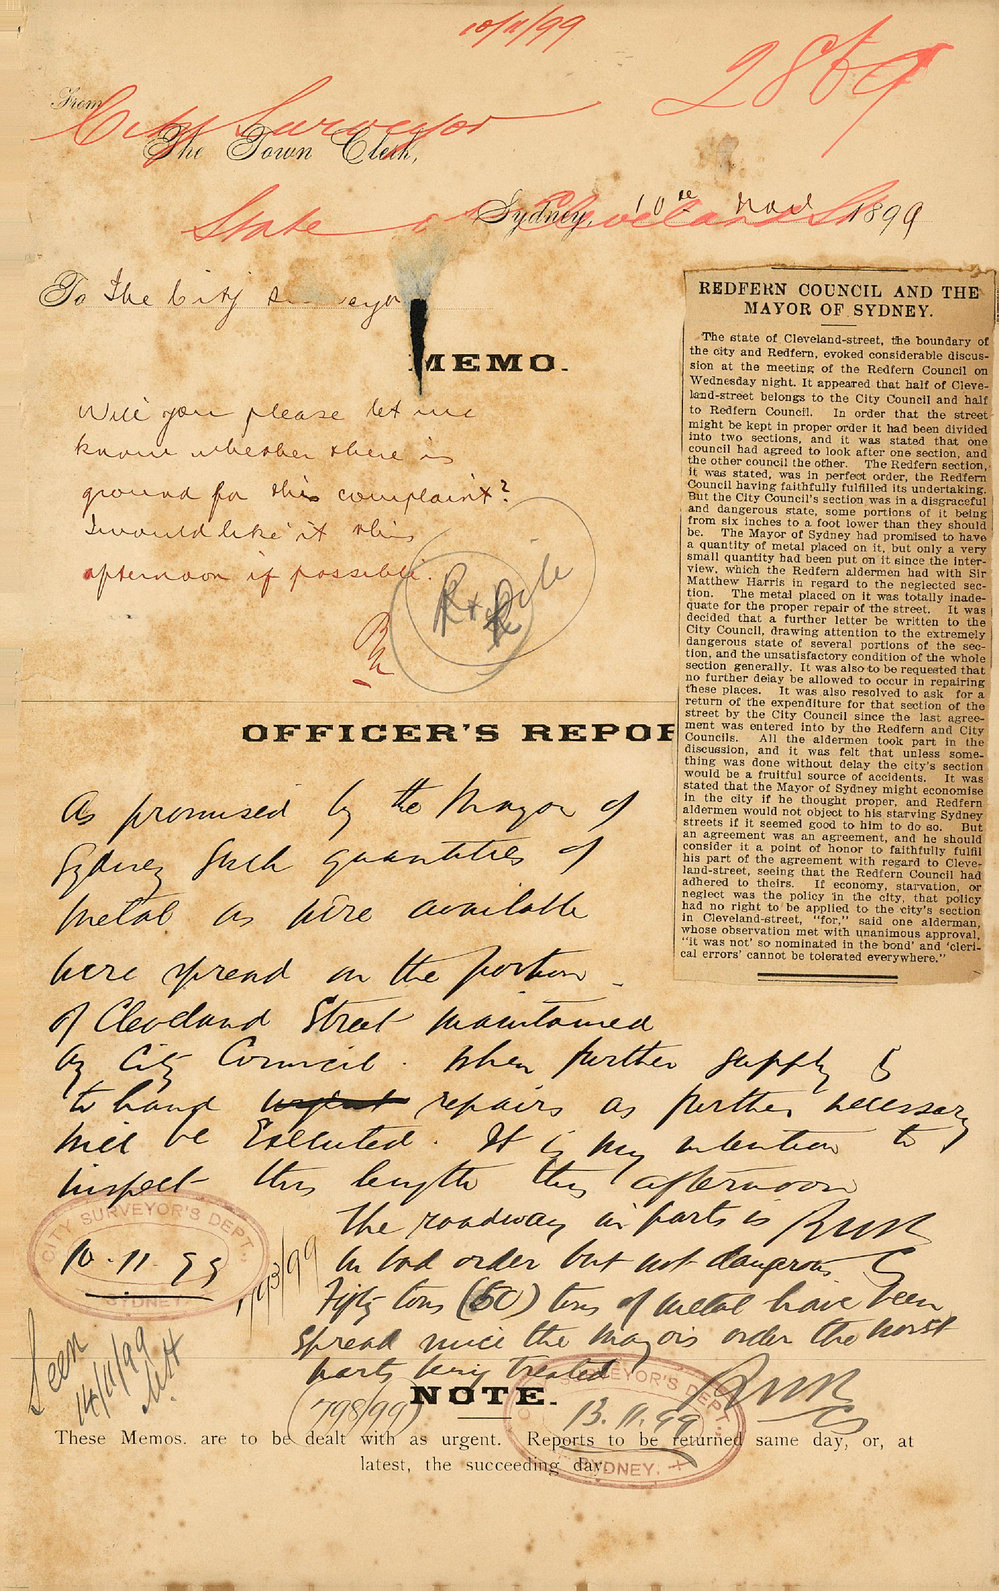 10/11/99
2869
From
City Surveyor
The Town Clerk,
State of Cleveland St
Sydney, 10th Nov 1899
To The City Surveyor
MEMO.
Will you please let me
know whether there is
ground for this complaint?
I would like it this
afternoon if possible.
R & R
file
REDFERN COUNCIL AND THE
MAYOR OF SYDNEY.
The state of Cleveland-street, the boundary of
the city and Redfern, evoked considerable discus-
sion at the meeting of the Redfern Council on
Wednesday night. It appeared that half of Cleve-
land-street belongs to the City Council and half
to Redfern Council. In order that the street
might be kept in proper order it had been divided
into two sections, and it was stated that one
council had agreed to look after one section, and
the other council the other. The Redfern section,
it was stated, was in perfect order, the Redfern
Council having faithfully fulfilled its undertaking.
But the City Council's section was in a disgraceful
and dangerous state, some portions of it being
from six inches to a foot lower than they should
be. The Mayor of Sydney had promised to have
a quantity of metal placed on it, but only a very
small quantity had been put on it since the inter-
view, which the Redfern aldermen had with Sir
Matthew Harris in regard to the neglected sec-
tion. The metal placed on it was totally inade-
quate for the proper repair of the street. It was
decided that a further letter be written to the
City Council, drawing attention to the extremely
dangerous state of several portions of the sec-
tion, and the unsatisfactory condition of the whole
section generally. It was also to be requested that
no further delay be allowed to occur in repairing
these places. It was also resolved to ask for a
return of the expenditure for that section of the
street by the City Council since the last agree-
ment was entered into by the Redfern and City
Councils. All the aldermen took part in the
discussion, and it was felt that unless some-
thing was done without delay the city's section
would be a fruitful source of accidents. It was
stated that the Mayor of Sydney might economise
in the city if he thought proper, and Redfern
aldermen would not object to his starving Sydney
streets if it seemed good to him to do so. But
an agreement was an agreement, and he should
consider it a point of honor to faithfully fulfil
his part of the agreement with regard to Cleve-
land-street, seeing that the Redfern Council had
adhered to theirs. If economy, starvation, or
neglect was the policy in the city, that policy
had no right to be applied to the city's section
in Cleveland-street, "for," said one alderman,
whose observation met with unanimous approval,
"it was not' so nominated in the bond' and 'cleri-
cal errors' cannot be tolerated everywhere."
OFFICER'S REPOR
As promised by the Mayor of
Sydney such quantities of
metal as were available
were spread on the portion
of Cleveland Street maintained
by City Council. When further supply is
to hand urgent repairs as further necessary
will be Executed. It is my intention to
inspect this length this afternoon
RWR
CITY SURVEYOR'S DEPT.
10.11.99
SYDNEY.
The roadway in parts is
in bad order but not dangerous
Fifty tons (50) tons of metal have been
spread since the mayors order the worst
parts being treated
RWR
Seen
14/11/99
NOTE.
(798/99)
SURVEYOR'S DEPT.
13.11.99
SYDNEY.
These Memos. are to be dealt with as urgent. Reports to be returned same day, or, at
latest, the succeeding day.